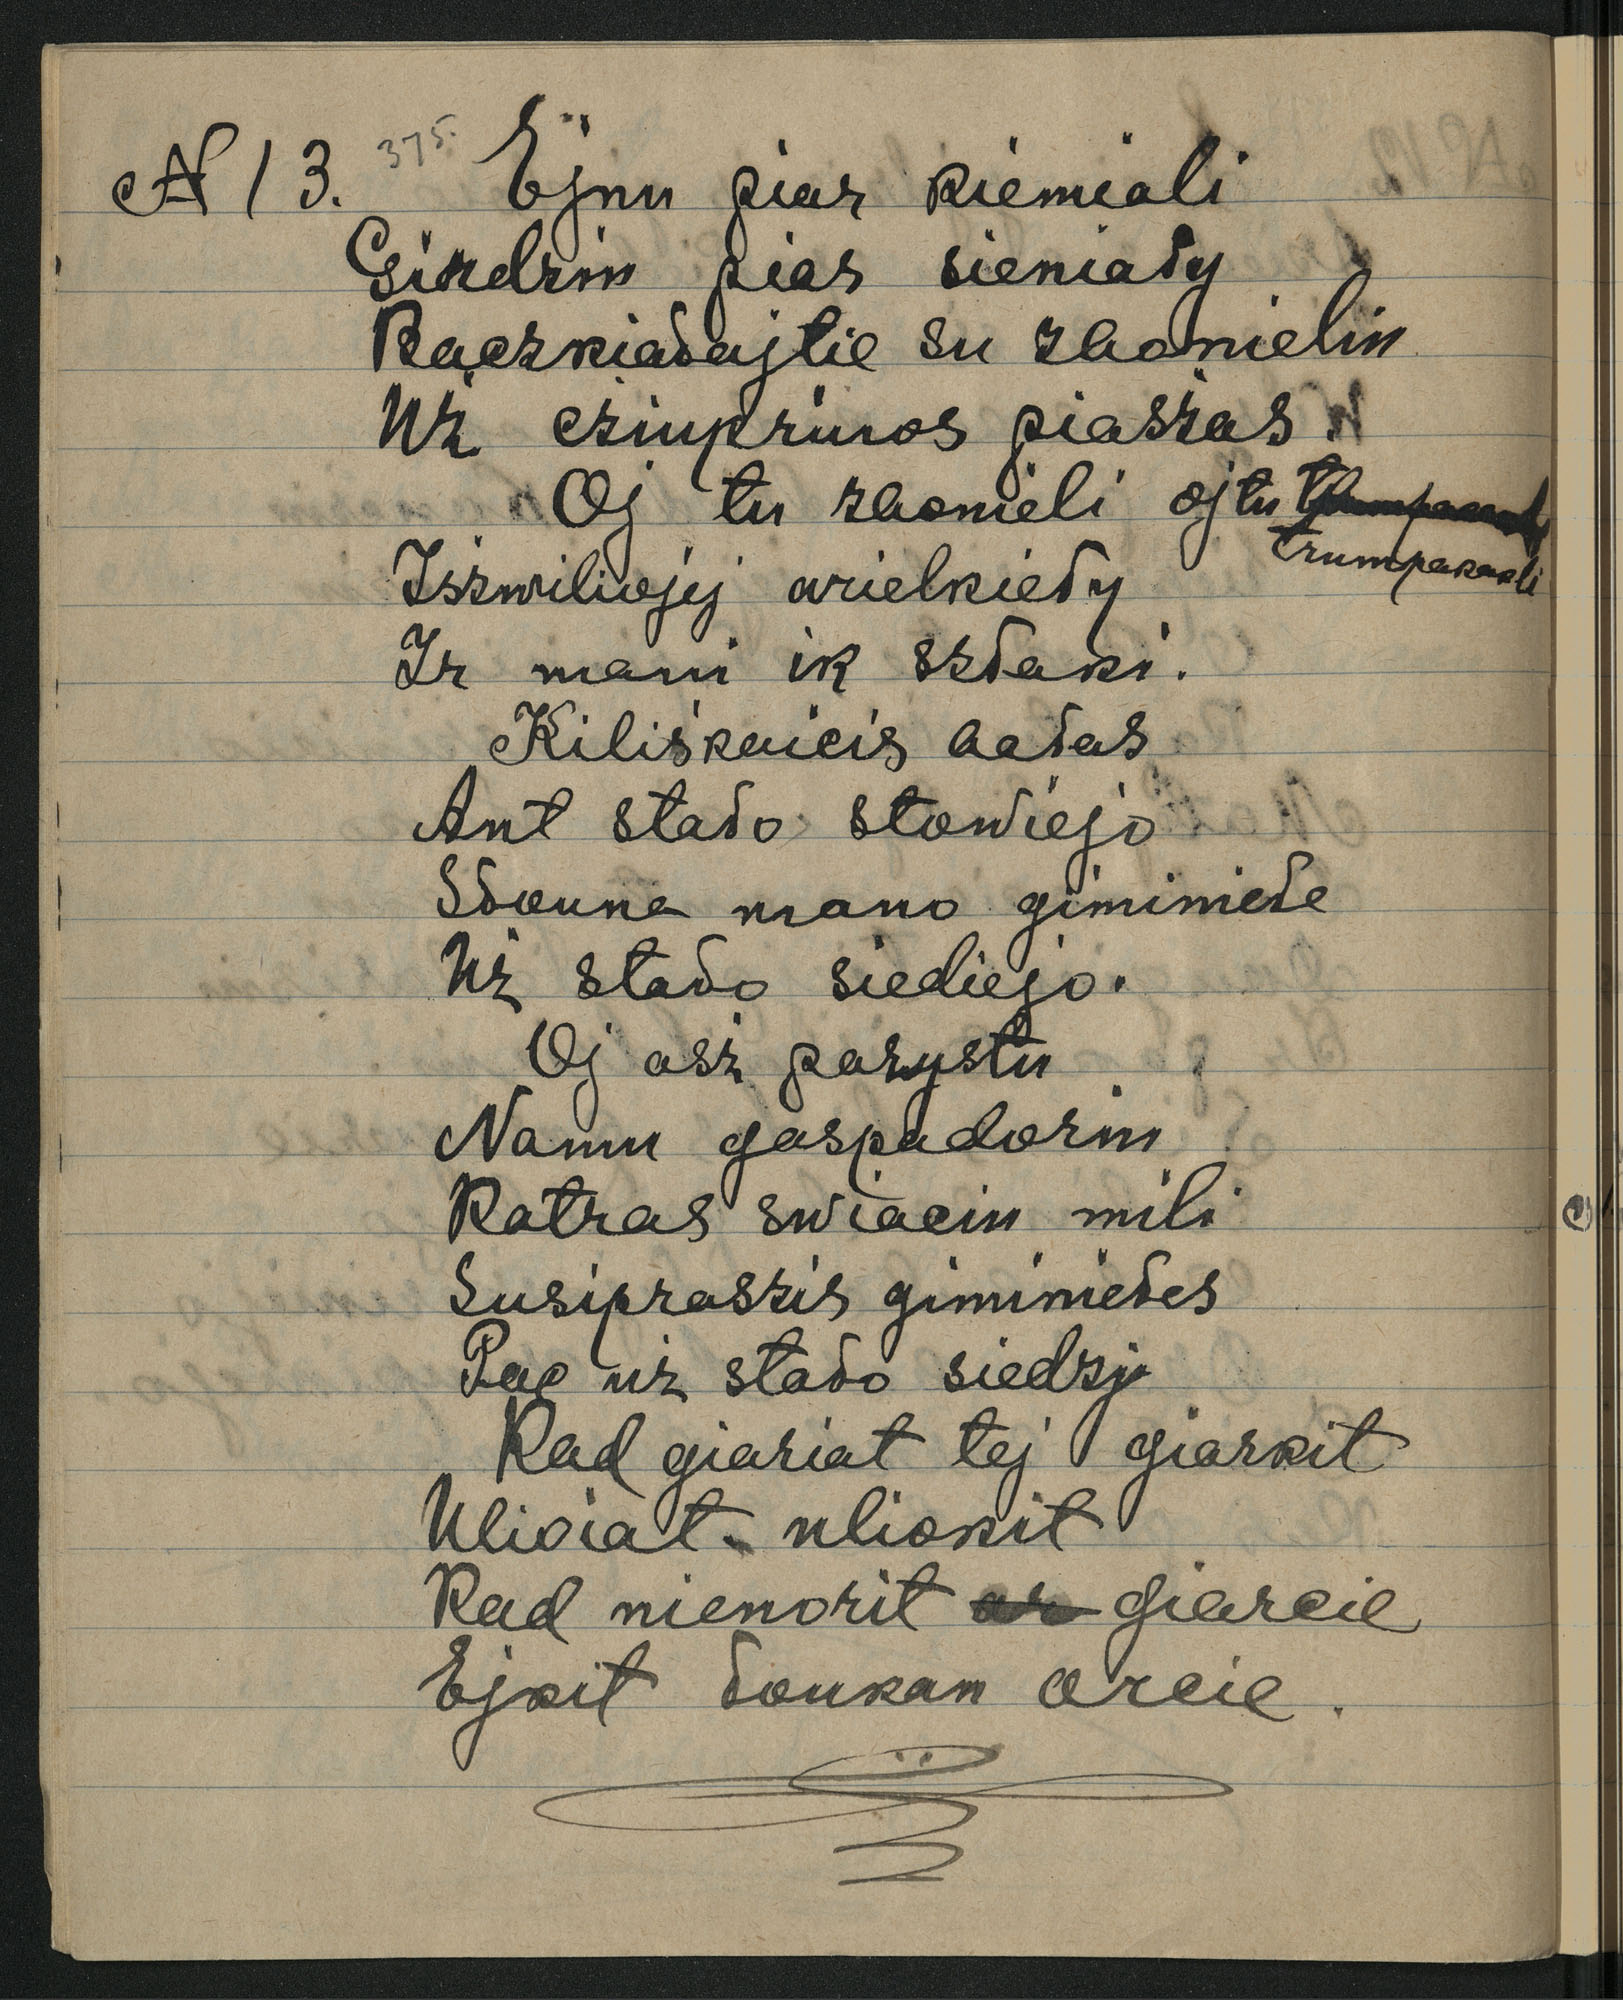 N 13. 375. Ejnu piar kiemiali
Girdzin piar sieniały
Baczkiałajtie su zbonielin
Uż cziuprinos piaszas.
Oj tu zbonieli ojtu
trumpakakli
Iszwiliojej arielkieły
Ir mani ik szłaki.
Kiliśkaicis bałas
Ant stało stowiejo
Słauna mano giminieła
Uż stało siediejo.
Oj asz pazystu
Namu gaspadorin
Katras swiaciu mili
Susipraszis giminiełes
Pac uż stało siedzi
Kad giariat tej giarkit
Uliojat uliokit
Kad nienorit giarcie
Ejkit łaukan arcie.